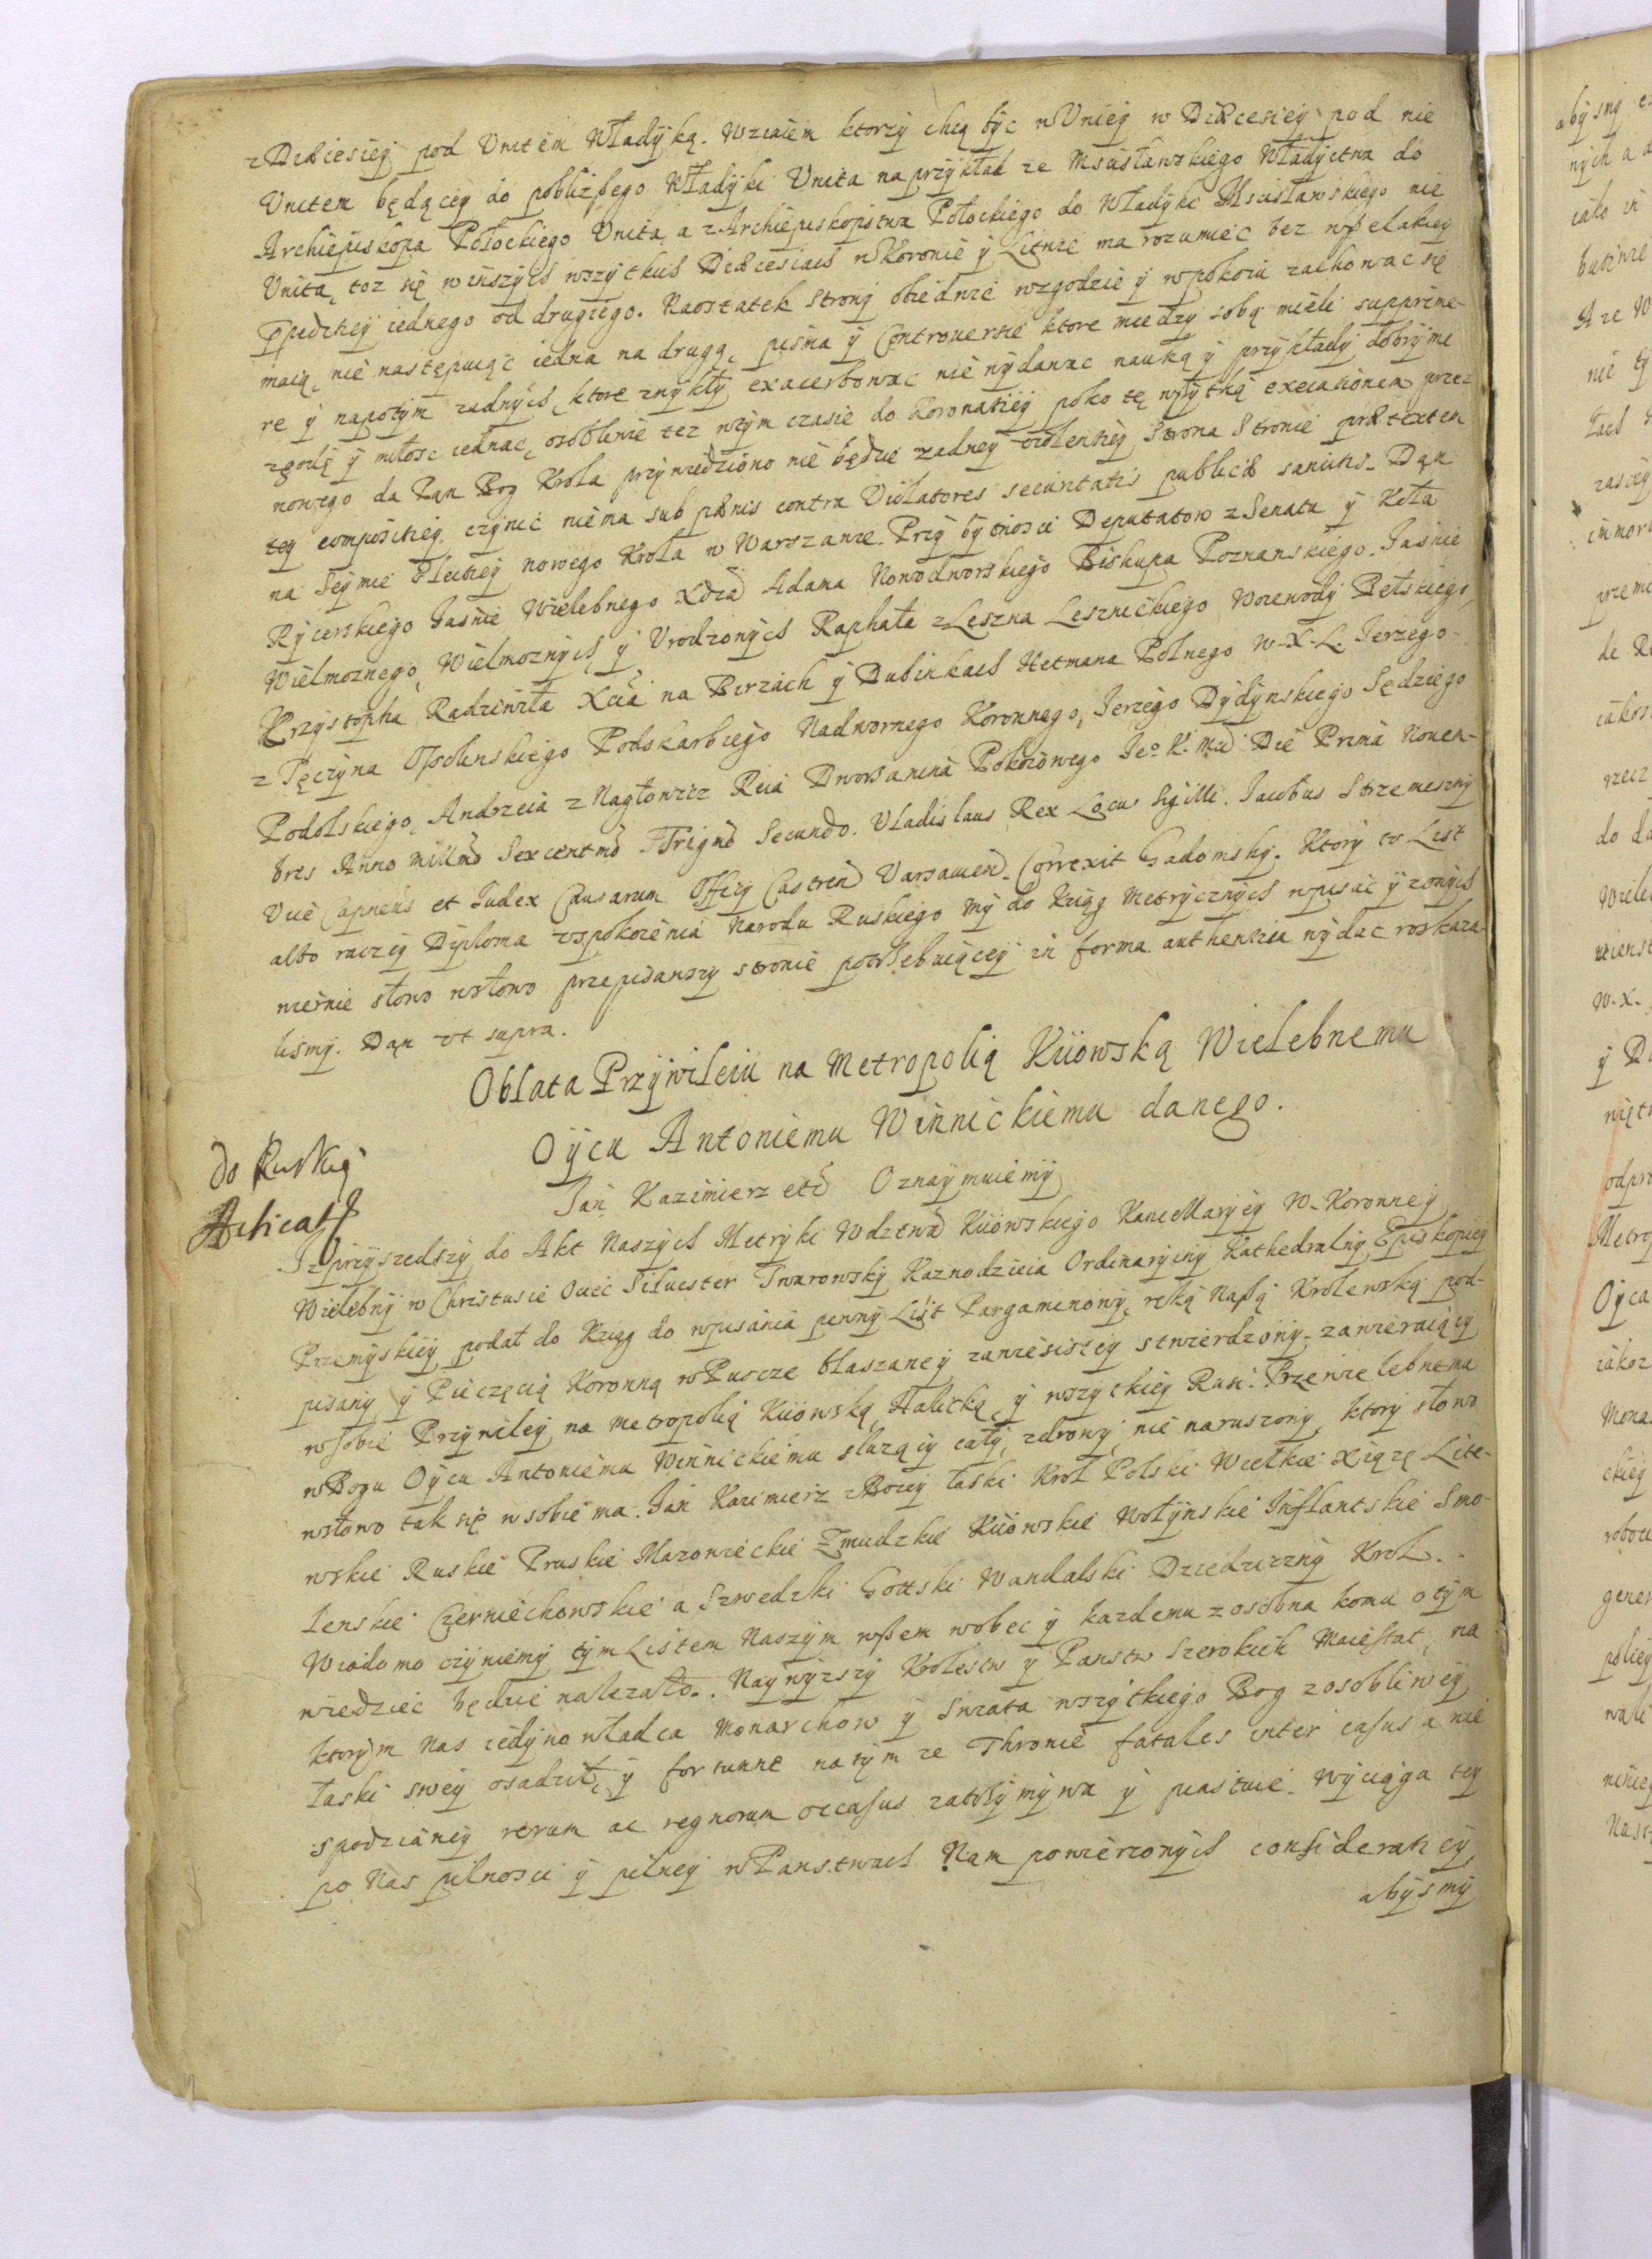 z Diæcesiey pod Unitem Władyką. Wzaiem ktorzy chcą byc w Uniey w Diæcesiey pod nie
Unitem będącey do pobliżßego Władyki Unita na przykład ze Mscisławskiego Władyctwa do
Archiepiskopa Połockiego Unita, a z Archiepiskopstwa Połockiego do Władyki Mscisławskiego nie
Unita, toz się w inszych wszytkich Diæcesiach w Koronie y Litwie ma rozumiec bez wßelakiey
jednego od drugiego. Naostatek Strony obiedwie wzgodzie y wpokoiu zachowac się
maią, nie następuiąc iedna na drugą, pisma y Controuersie ktore miedzy sobą mieli supprime-
re y napotym zadnych, ktore zwykły exacerbowac nie wydawac nauką y przykłady dobrymi
zgodę y miłosc iednac, osobliwie tez wtym czasie do Koronatiey poko tę wßytką executionem przez
nowego da Pan Bog Krola przywiedziono nie będzie zadney violentiey Strona Stronie prætextem
tey compositiey czynic niema sub pænis contra Violatores securitatis publicæ sancitis. Dan
na Seymie Electiey nowego Krola w Warszawie. Przy bytnosci Deputatow z Senatu y Koła
Rycerskiego Jasnie Wielebnego Xdza Adama Nowodworskiego Biskupa Poznanskiego. Jasnie
Wielmoznego, Wielmoznych y Urodzonych Raphała z Leszna Lesznickiego Woiewody Bełskiego,
Krzystopha Radziwiła Xcia na Birzach y Dubinkach Hetmana Polnego W. X. L. Jerzego
z Tęczyna Ossolinskiego Podskarbiego Nadwornego Koronnego, Jerzego Dydynskiego Sędziego
Podolskiego, Andrzeia z Nagłowicz Reia Dworzanina Pokoiowego Jeo K. Mci Die Prima Novem-
bres Anno Millmo Sexcentmo Trigmo Secundo. Vladislaus Rex Locus Sigilli. Jacobus Strzemeszny
Vice Capneus et Judex Causarum Officy Castren Varsavien. Correxit Gadomsky. Ktory to List
albo raczey Dyploma uspokoienia Narodu Ruskiego my do Xiąg Metrycznych wpisac y z onych
wiernie słowo wsłowo przepisawszy stronie potrzebuiącey in forma authentica wydac roskaza-
lismy. Dan ut supra.
Oblata Przywileiu na Metropolią Kiiowską Wielebnemu
Oycu Antoniemu Winnickiemu danego.
do Ruskiey
Jan Kazimierz etc Oznaymuiemy
Iz przyszedszy do Akt Naszych Metryki Wdztwa Kiiowskiego Kancellaryiey W. Koronney
Wielebny w Christusie Ociec Silvester Twarowsky Kaznodzieia Ordinaryiny Kathedralny Episkopiey
Przemyskiey podał do Xiąg do wpisania pewny List Pargaminowy, ręką Naßą Krolewską pod-
pisany y Pieczęcią Koronną w Puscze blaszaney zawiesistey stwierdzony. zawieraiący
w sobie Przywiley na metropolią Kiiowską, Halicką, y wszytkiey Rusi. Przewielebnemu
w Bogu Oycu Antoniemu Winnickiemu sluzący cały, zdrowy, nie naruszony, ktory słowo
wsłowo tak się w sobie ma. Jan Kazimierz z Bozey łaski Krol Polski Wielkie Xiązę Lite-
wskie Ruskie Pruskie Mazowieckie Zmudzkie Kiiowskie Wołynskie Inflantskie Smo-
lenskie Czerniechowskie a Szwedzki Gottski Wandalski Dziedziczny Krol.
Wiadomo czyniemy tym Listem Naszym wßem wobec y kazdemu zosobna komu o tym
wiedziec będzie nalezało. Naywyzszy Krolestw y Panstw Szerokich Maiestat, na
ktorym Nas iedyno władca Monarchow y Swiata wszytkiego Bog z osobliwey
łaski swey osadził, y fortunne natym ze Thronie fatales inter casus a nie
spodzianey rerum ac regnorum occasus zatrzymywa y piastuie. Wyciąga tey
po Nas pilnosci y pilney w Panstwach Nam powierzonych consideratiey
abysmy